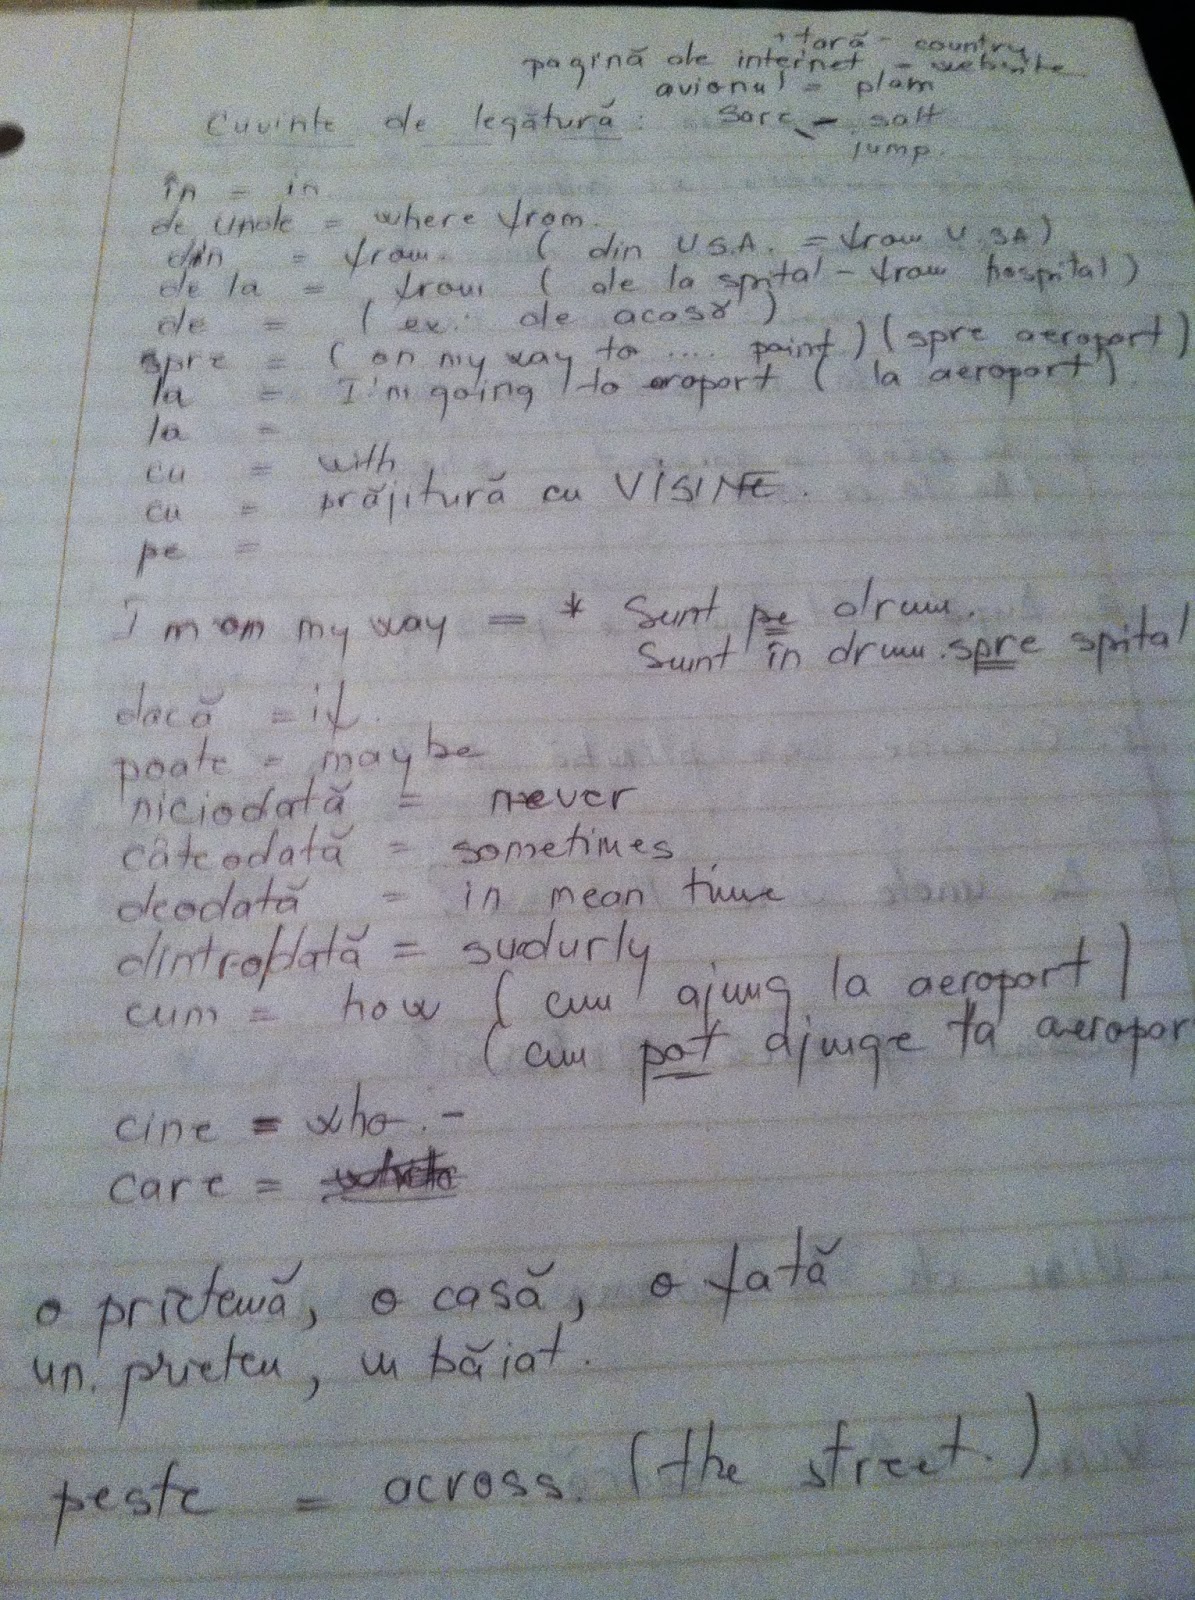 țară - country
pagină de internet - website
avionul = plam
Cuvinte de legătură: Sare - salt
jump.
în = in
de unde = where from.
din = from. (din U.S.A. = from U.S.A)
de la = from (de la spital - from hospital)
de = (ex: de acasă)
spre = (on my way to .... point) (spre aeroport)
la = I'm going to eroport (la aeroport)
la =
cu = with
cu = prăjitură cu VIȘINE.
pe =
I'm on my way = * Sunt pe drum.
Sunt în drum spre spital
dacă = if.
poate = maybe
niciodată = never
câteodată = sometimes
deodată = in mean time
dintrodată = sudurly
cum = how (cum ajung la aeroport)
(cum pot ajunge la aeropor
cine = who. -
care =
o prietenă, o casă, o fată
un. prieten, un băiat.
peste = across. (the street.)